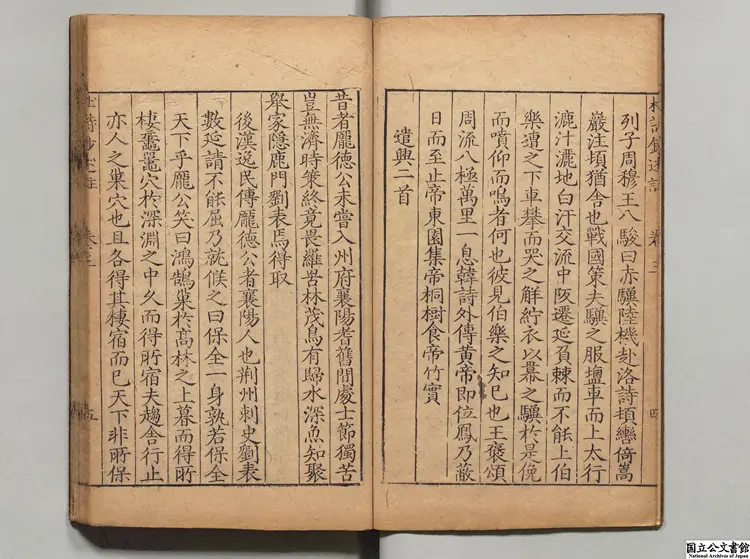 列子周穆王八駿曰赤驥陸機赴洛詩頓轡倚嵩
巖注頓猶舎也戰國策夫驥之服塩車而上太行
漉汁灑地白汗交流中阪遷延負棘而不能上伯
樂遭之下車攀而哭之觧紵衣以冪之驥於是俛
而噴仰而鳴者何也彼見伯樂之知已也王褒頌
周流八極萬里一息韓詩外傳黄帝即位鳳乃蔽
日而至止帝東園集帝桐樹食帝竹實
遣興二首
昔者龐德公未嘗入州府襄陽耆舊間處士節獨苦
豈無濟時策終竟畏羅罟林茂鳥有歸水深魚知聚
舉家隠鹿門劉表焉得取
後漢逸民傳龐德公者襄陽人也荆州刺史劉表
數延請不能屈乃就候之曰保全一身孰若保全
天下乎龐公笑曰鴻鵠巢於髙林之上暮而得所
棲黿鼉穴於深淵之中夕而得所宿夫趨舎行止
亦人之巢穴也且各得其棲宿而已天下非所保
卷三
四
国立公文書館
National Archives of Japan